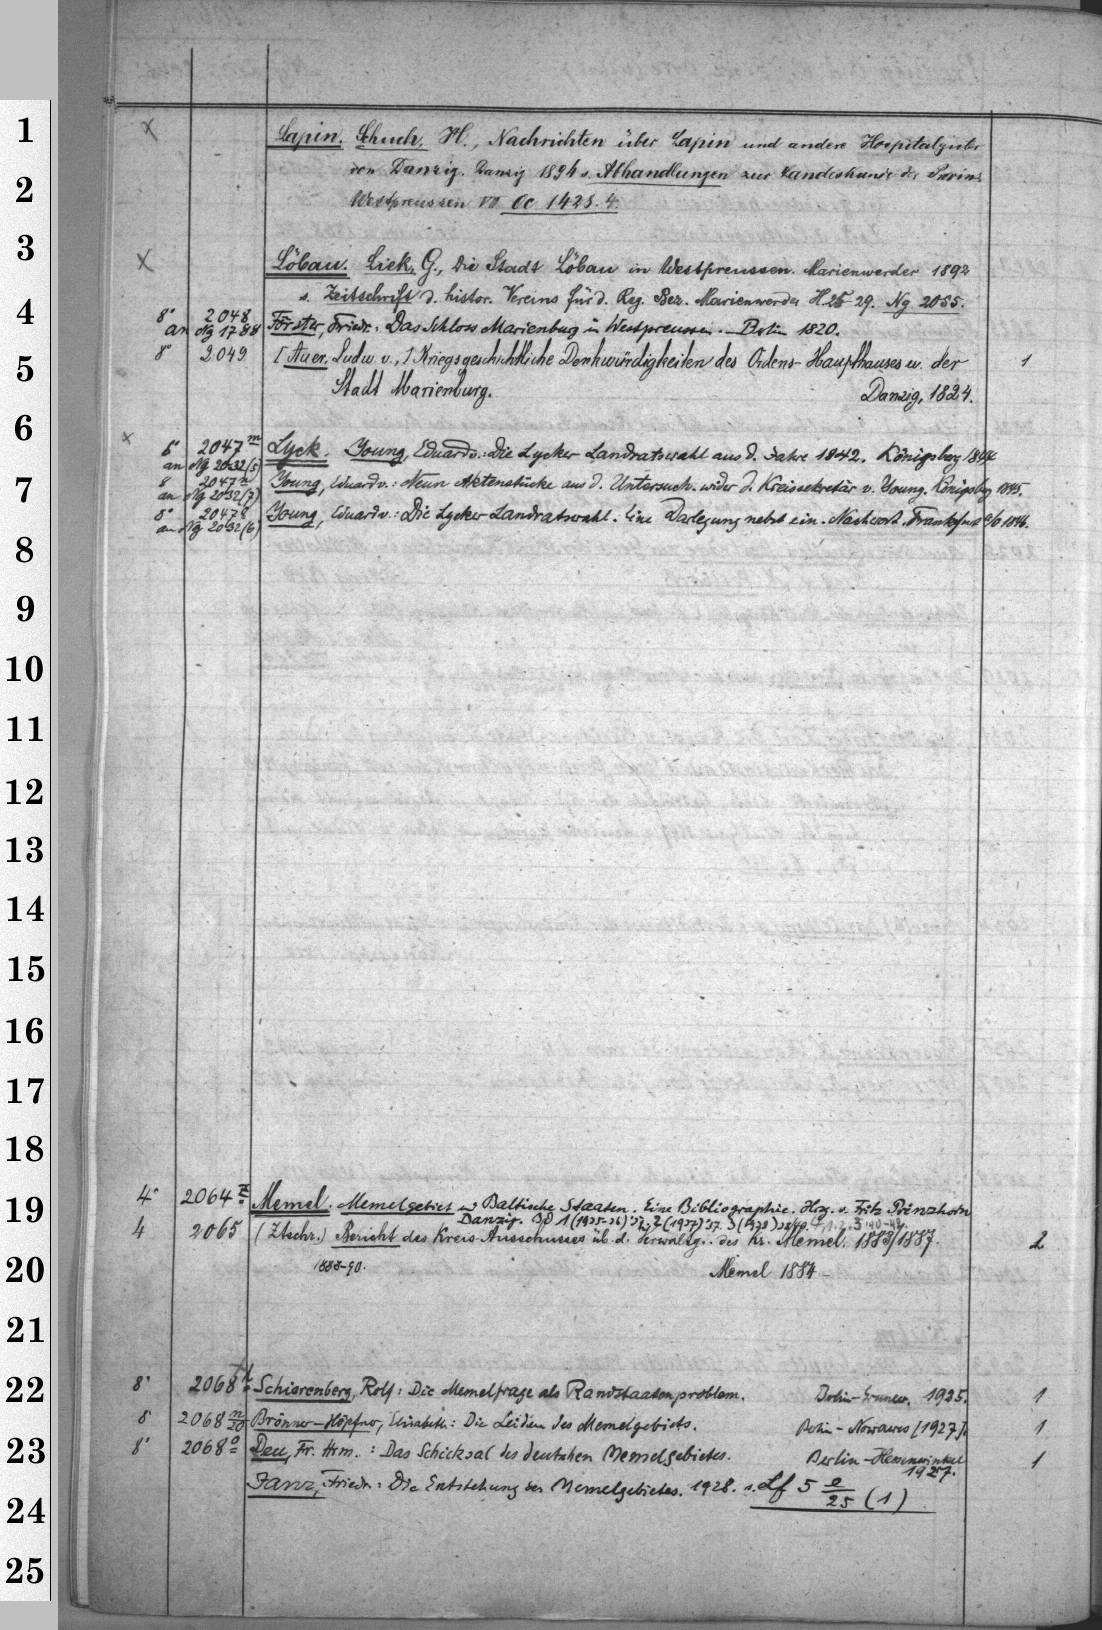 1
2
3
4
5
6
7
8
9
10
11
12
13
14
15
16
17
18
19
20
21
22
23
24
25
x Lapin. Schuch, H., Nachrichten über Lapin und andere Hospitalgüter
von Danzig. Danzig 1894 s. Abhandlungen zur Landeskunde der Provinz
Westpreussen VII Oc 1428.4.
x Löbau. Liek, G., Die Stadt Löbau in Westpreussen. Marienwerder 1892
s. Zeitschrift d. histor. Vereins für d. Reg. Bez. Marienwerder H. 25-29. Ng 2055.
8° 2048
an Ng 1788 Förster, Friedr.: Das Schloss Marienburg in Westpreussen. Berlin 1820.
8° 2049 [Auer, Ludw. v.,] Kriegsgeschichtliche Denkwürdigkeiten des Ordens-Haupthauses u. der 1
Stadt Marienburg. Danzig, 1824.
x 8° 2047m Lyck. Young, Eduard v.: Die Lycker Landratswahl aus d. Jahre 1842. Königsberg 1844
an Ng 2032(5)
8 2047n Young, Eduard v.: Neun Aktenstücke aus d. Untersuch. wider d. Kreissekretär v. Young. Königsbg 1845.
an Ng 2032(7)
8° 2047 Young, Eduard v.: Die Lycker Landratswahl. Eine Darlegung nebst ein. Nachwort. Frankfurt a/O 1846.
an Ng 2032(6)
4° 2064 Memel. Memelgebiet u. Baltische Staaten. Eine Bibliographie. Hrg. v. Fritz Prinzhorn
Danzig. Bd 1 (1935-36) '37, 2 (1937) '37. 3 (1938)
4 2065 (Ztschr.) Bericht des Kreis-Ausschusses üb. d. Verwaltg. des Kr. Memel. 1883/1887. 2
1888-90. Memel 1884-
8° 2068 Schierenberg, Rolf: Die Memelfrage als Randstaatenproblem. Berlin-Grunew. 1925. 1
8° 2068 n/20 Brönner-Höpfner, Elisabeth: Die Leiden des Memelgebiets. Berlin-Nowawes [1927]. 1
8° 2068o Deu, Fr. Hrm.: Das Schicksal des deutschen Memelgebietes. Berlin-Hessenwinkel 1
1927.
Janz, Friedr.: Die Entstehung des Memelgebietes. 1928. s. Lf 5 e/25 (1)